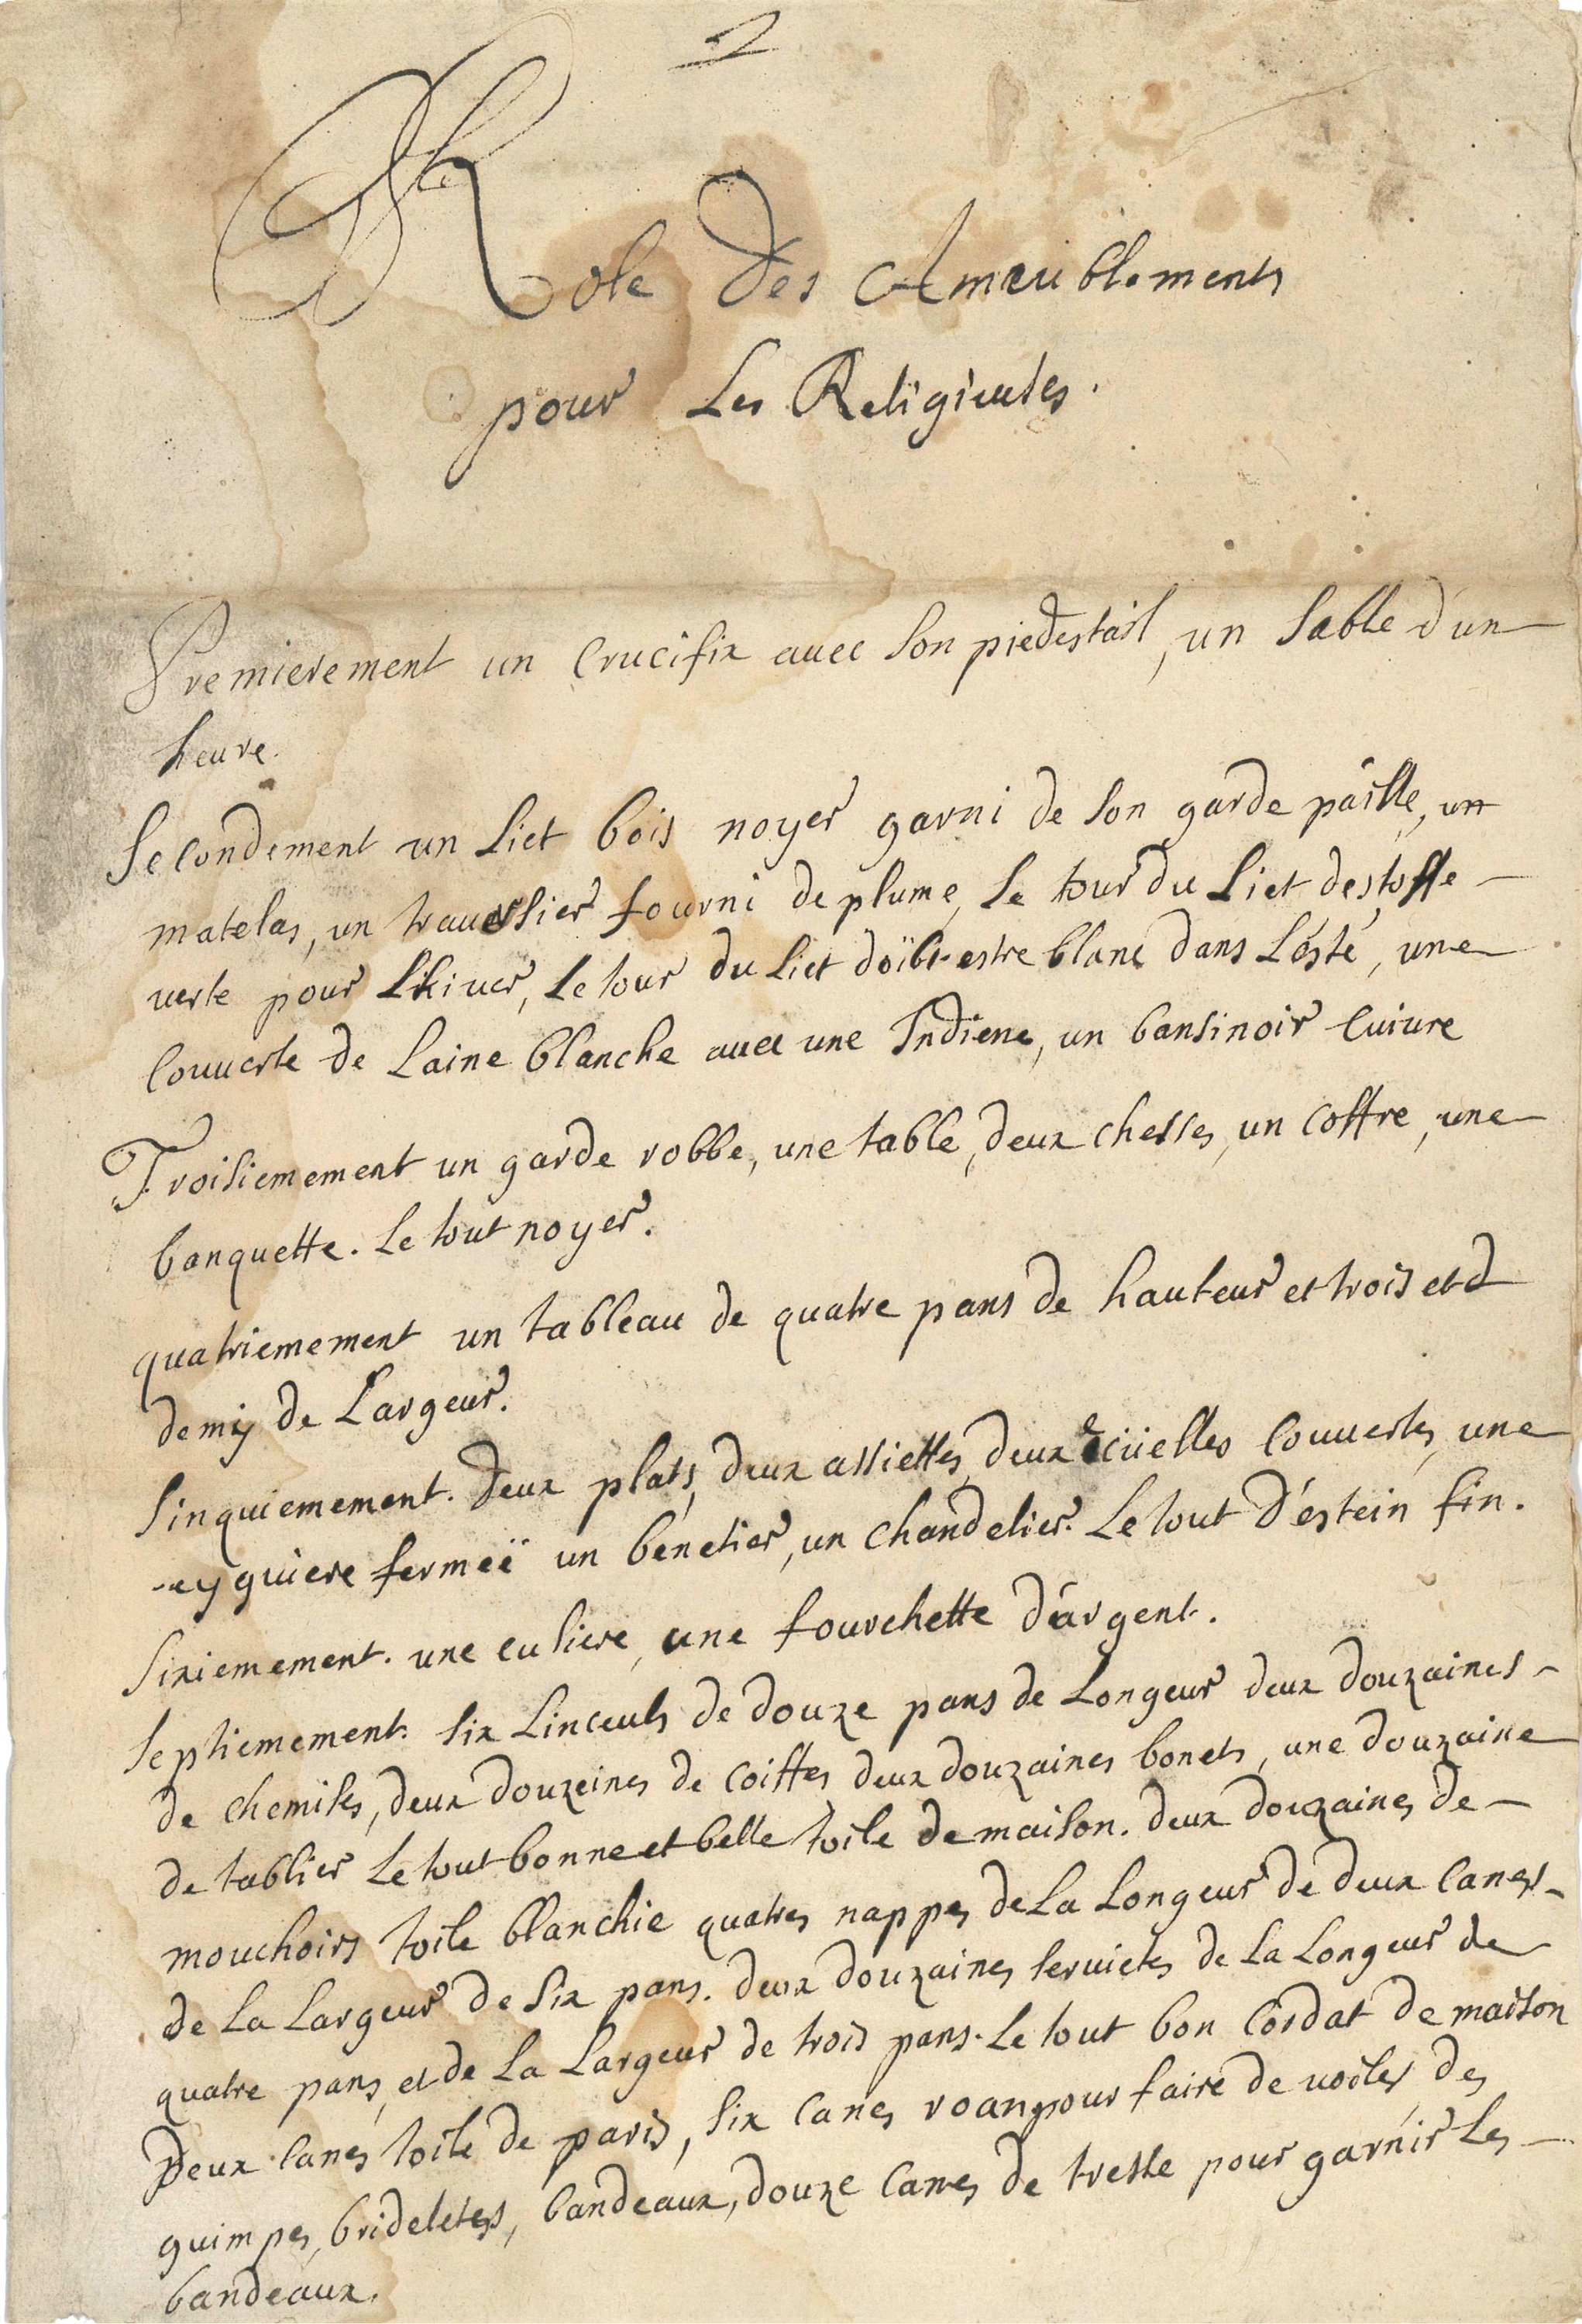 2
Role des Ameublements
pour Les Religieuses.
Premierement un Crucifix auec son piedestail, un sable d'un
heure.
Secondement un Lict bois noyer garni de son garde pàille, un
matelas, un trauersier fourni de plume, Le tour du Lict destoffe
uerte pour L'hiuer, Le tour du Lict doïbt estre blanc dans L'ésté, une
Couuerte de Laine blanche auec une Indiene, un bansinoir Cuiure
Troisiemement un garde robbe, une table, deux chesses, un Coffre, une
banquette. Le tout noyer.
quatriemement un tableau de quatre pans de hauteur et trois et d
demij de Largeur.
Sinquiemement. deux plats, deux assiettes, deux ecüelles Couuertes, une
eyguiere fermeë un benetier, un chandelier. Le tout d'éstein fin.
Sixiemement. une culiere, une fourchette d'argent.
Septiemement. six Linceuls de douze pans de Longeur deux douzaines
de chemises, deux douzeines de Coiffes deux douzaines bonets, une douzaine
de tablier Le tout bonne et belle toile de maison. deux douzaines de
mouchoirs toile blanchie quatres nappes de La Longeur de deux Canes
de La Largeur de six pans. deux douzaines seruietes de La Longeur de
quatre pans, et de La Largeur de trois pans. Le tout bon Cordat de maison
Deux Canes toile de paris, six Canes roan pour faire de uoiles, des
guimpes, brideletes, bandeaux, douze Canes de tresse pour garnir Les
bandeaux.